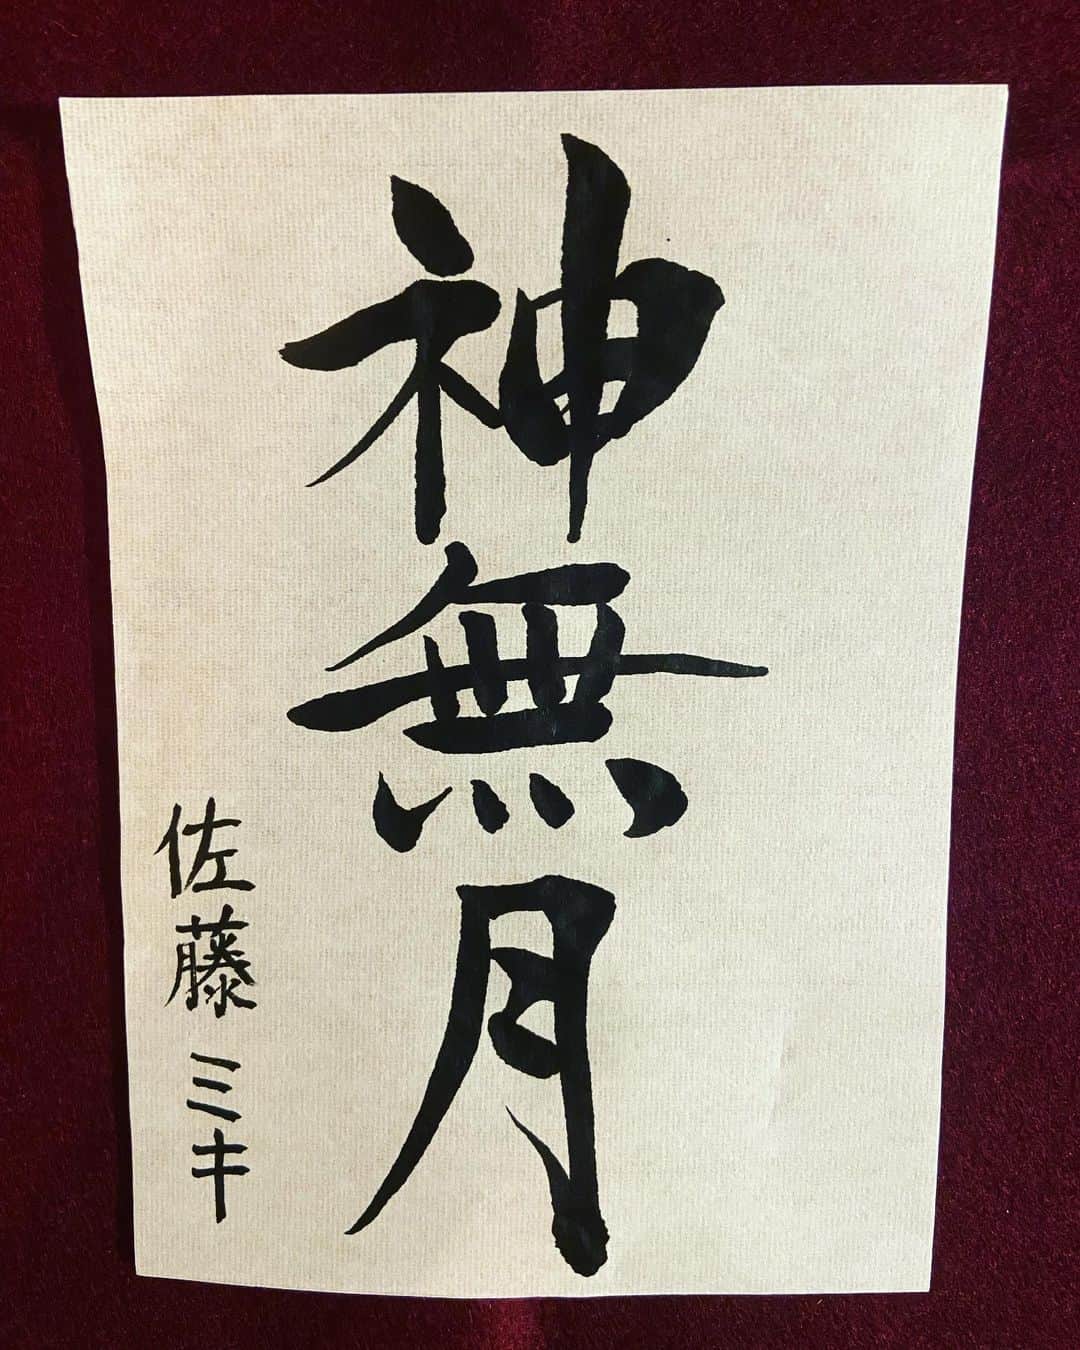 神無月
佐藤ミキ